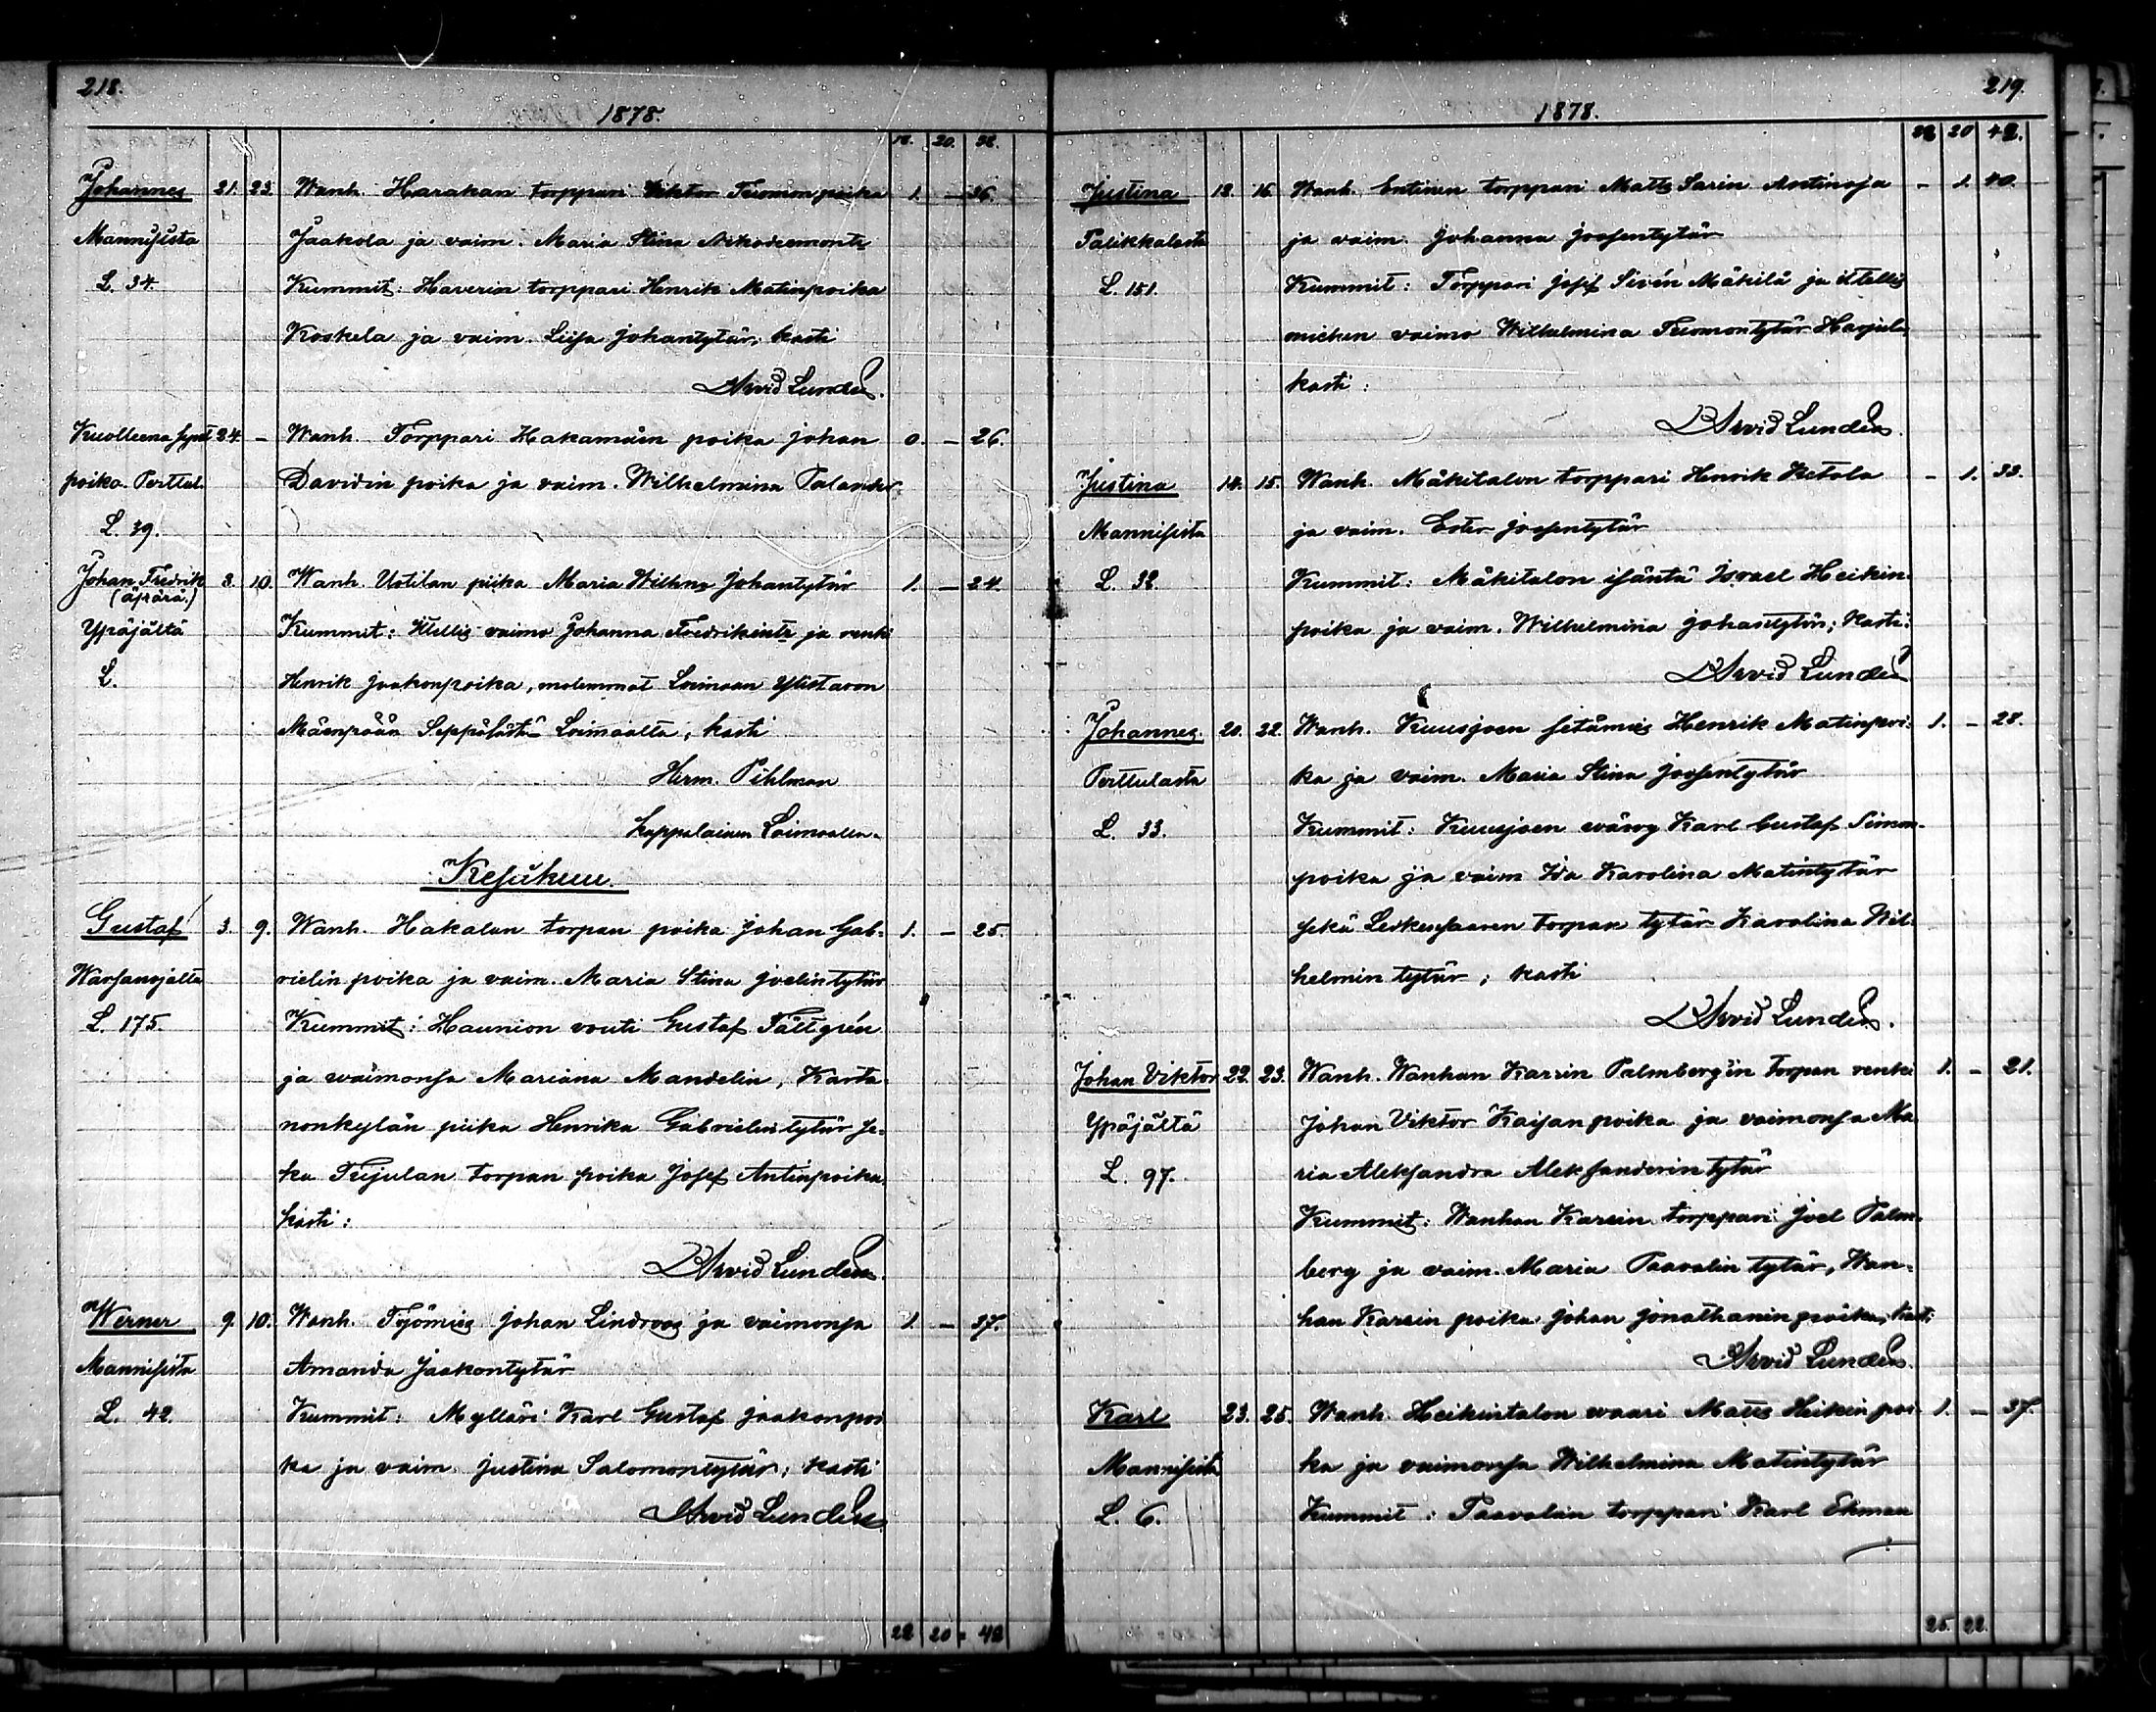 218.
1878.
18. 20. 38.
Johannes 21. 23. Wanh. Harakan torppari Viktor Tuomonpoika 1. — 36.
Mannisista Jaakola ja vaim. Maria Stina
L. 34. Kummit: Haverin torppari Henrik Matinpoika
Koskela ja vaim. Liisa Johantytär; kasti
Arvid Lundén.
Kuolleena synt. 24. — Wanh. Torppari Hakamäen poika Johan 0. — 26.
poika. Perttul. Davidin poika ja vaim. Wilhelmina Palander.
L. 39.
Johan Fredrik 3. 10. Wanh. Uotilan piika Maria Wilhma Johantytär 1. — 24.
(äpärä.)
Ypäjältä Kummit: Itsellis vaimo Johanna Fredrikintr ja renki
L. Henrik Jaakonpoika, molemmat Loimaan Ylistaron
Mäenpään Seppälästä Loimaalta; kasti
Herm. Pihlman
kappalainen Loimaalla.
Kesäkuu.
Gustaf 3. 9. Wanh. Hakalan torpan poika Johan Gab- 1. — 25.
Warsanojalta rielin poika ja vaim. Maria Stina Joelintytär
L. 175 Kummit: Haunion vouti Gustaf Tällgrén
ja waimonsa Mariana Mandelin, Karta-
nonkylän piika Henrika Gabrielintytär se-
kä Teijulan torpan poika Josef Antinpoika.
kasti:
Arvid Lundén.
Werner 9. 10. Wanh. Työmies Johan Lindroos ja vaimonsa 1. — 37.
Mannisista Amanda Jaakontytär
L. 42. Kummit: Mylläri Karl Gustaf Jaakonpoi
ka ja vaim. Justina Salomontytär; kasti
Arvid Lundén.
22 20 = 42
219.
1878.
22 20 42.
Justina 12. 16. Wanh. Entinen torppari Matts Sarin Antinoja — 1. 40.
Palikkalasta ja vaim. Johanna Joosentytär
L. 151. Kummit: Torppari Josef Sivén Mäkilä ja itsellis
miehen vaimo Wilhelmina Tuomontytär Harjula,
kasti:
Arvid Lundén.
Justina 14. 15. Wanh. Mäkitalon torppari Henrik Ketola — 1. 33.
Mannisista ja vaim. Ester Joosentytär
L. 32 Kummit: Mäkitalon isäntä Israel Heikin-
poika ja vaim. Wilhelmina Johantytär; kasti:
Arvid Lundén
Johannes 20. 22. Wanh. Kuusjoen setämies Henrik Matinpoi- 1. — 28.
Perttulasta ka ja vaim. Maria Stina Joosentytär
L. 33. Kummit: Kuusjoen wävy Karl Gustaf Simon-
poika ja vaim Ida Karolina Matintytär
sekä Leikessaaren torpan tytär Karolina Wil-
helmin tytär; kasti
Arvid Lundén.
Johan Viktor 22. 23. Wanh. Wanhan Karsin Palmberg'in torpan renki 1. — 21.
Ypäjältä Johan Viktor Kaisanpoika ja vaimonsa Ma
L. 97. ria Aleksandra Aleksanderintytär
Kummit: Wanhan Karsin torppari Joel Palm-
berg ja vaim. Maria Paavalin tytär, Wan-
han Karsin poika Johan Jonathanin poika; kasti;
Arvid Lundén.
Karl 23. 25. Wanh. Heikintalon waari Matts Heikin poi- 1. — 37.
Mannisista ka ja vaimonsa Wilhelmina Matintytär
L. 6. Kummit: Paavolan torppari Karl Ekman
25. 22.